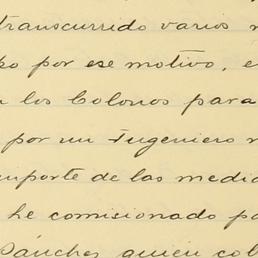 transcurrido varios
po por ese motivo, e
los Colonos para
por un Ingeniero
mporte de las medi
he comisionado po
Sánchez quien col